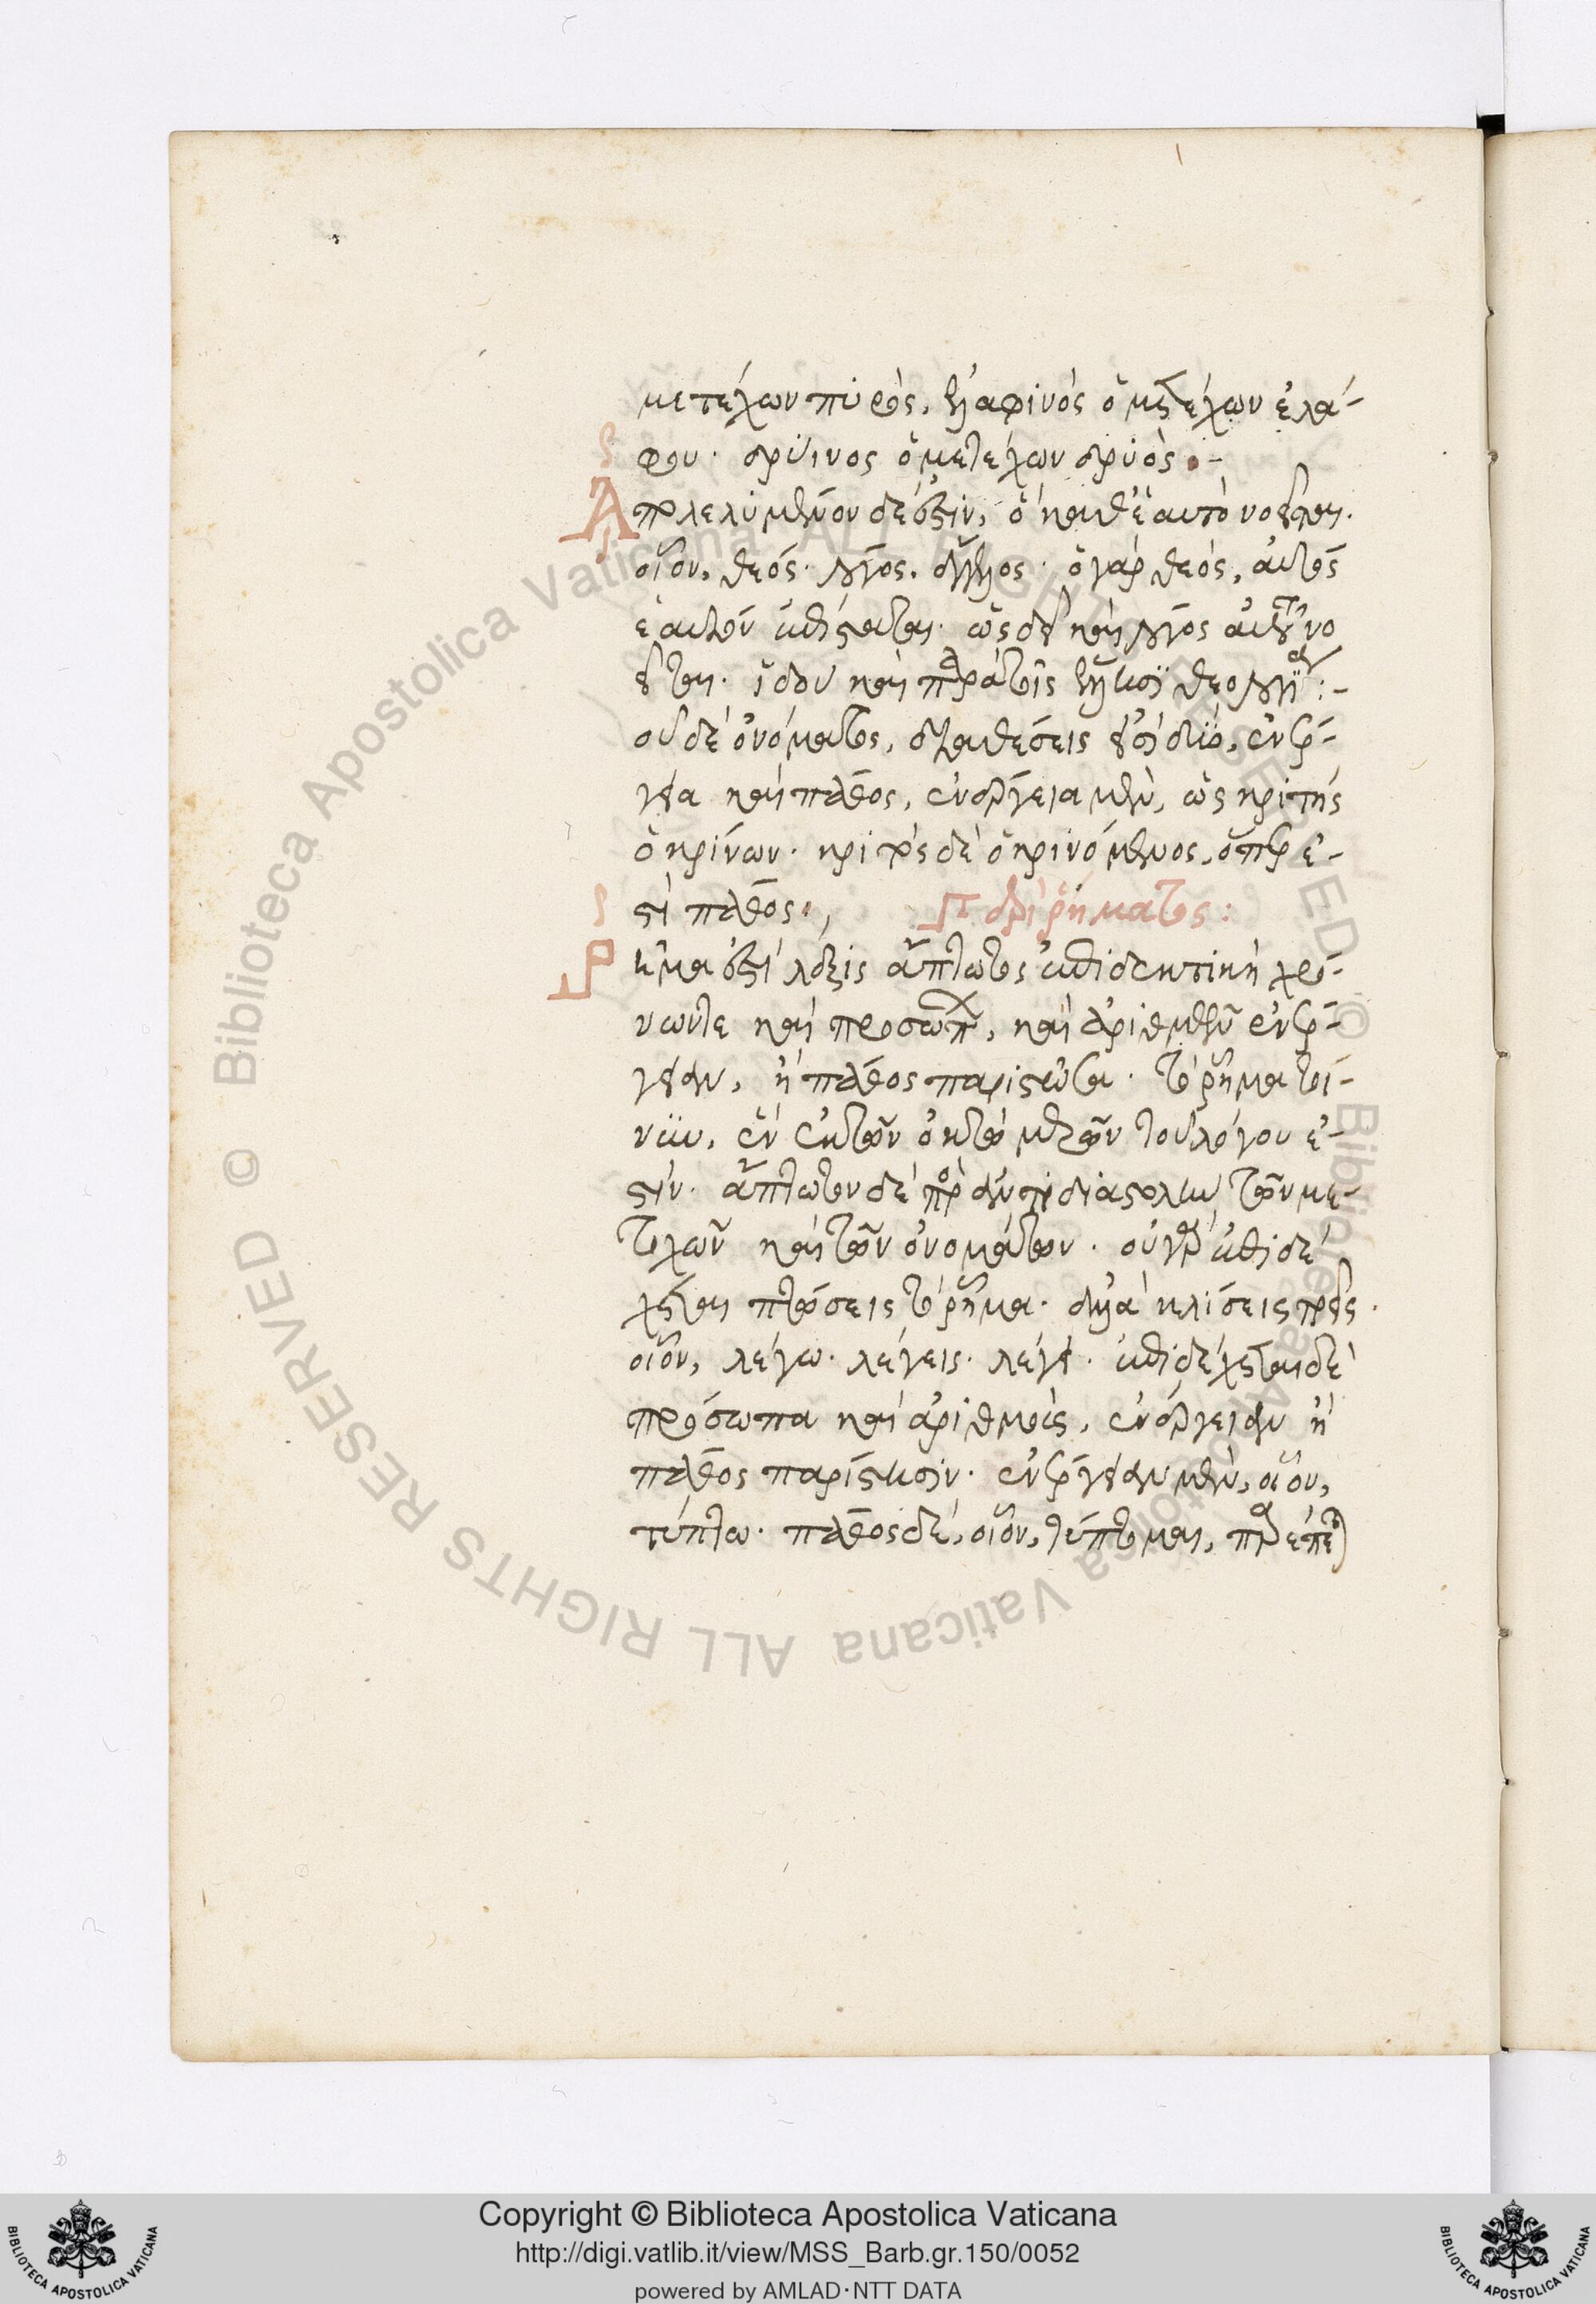 μετέχων πυρός, ἐλαφινός ὁ μετέχων ἐλά-
φου. δρύινος ὁ μετέχων δρυός :-
Ἀπολελυμένον δέ ἐστιν, ὃ καθ' ἑαυτὸ νοεῖται.
οἷον, θεός. λόγος. ὁ γὰρ θεός, αὐτὸς
ἑαυτὸν ἐπίσταται. ὡς δὲ καὶ λόγος αὐτὸ νο
εῖται. ἰδοὺ καὶ παρὰ τοῖς ἕλλησι θεολογία :-
οὐ δὲ ὀνόματος, διαθέσεις εἰσὶ δύο, ἐνέρ-
γεια καὶ πάθος, ἐνέργεια μὲν, ὡς κριτής
ὁ κρίνων. κριτὸς δὲ ὁ κρινόμενος, ὅπερ ἐ-
στὶ πάθος. Περὶ ῥήματος :
Ρῆμα ἐστὶ λέξις ἄπτωτος ἐπιδεκτικὴ χρό-
νων τε καὶ προσώπων, καὶ ἀριθμῶν ἐνέρ-
γειαν, ἢ πάθος παριστῶσα. τὸ ῥῆμα τοί-
νυν, ἓν ἐκ τῶν ὀκτὼ μερῶν τοῦ λόγου ἐ-
στίν. ἄπτωτον δὲ πρὸς ἀντιδιαστολὴν τῶν με-
τοχῶν καὶ τῶν ὀνομάτων. οὐ γὰρ ἐπιδέ
χεται πτώσεις τὸ ῥῆμα. ἀλλὰ κλίσεις
οἷον, λέγω. λέγεις. λέγει. ἐπιδέχεται δὲ
πρόσωπα καὶ ἀριθμούς, ἐνέργειαν ἢ
πάθος παρίστησιν. ἐνέργειαν μὲν, οἷον,
τύπτω. πάθος δέ, οἷον, τύπτομαι,
Copyright © Biblioteca Apostolica Vaticana
http://digi.vatlib.it/view/MSS_Barb.gr.150/0052
powered by AMLAD·NTT DATA
BIBLIOTECA APOSTOLICA VATICANA
BIBLIOTECA APOSTOLICA VATICANA
© Biblioteca Apostolica Vaticana ALL RIGHTS RESERVED © Biblioteca Apostolica Vaticana ALL RIGHTS RESERVED